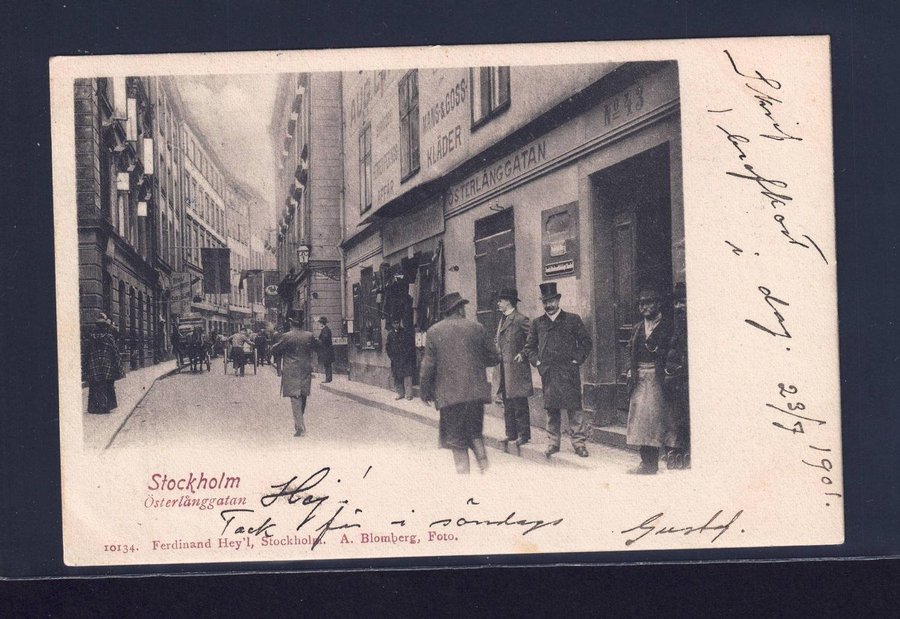 MANS & GOSS-
KLÄDER
ÖSTERLÅNGGATAN
No 43
Stockholm
Österlånggatan
Hej!
Tack för i söndags
Gustaf.
10134. Ferdinand Hey'l, Stockholm. A. Blomberg, Foto.
Skrif
brefkort
i dag.
23/7 1901.